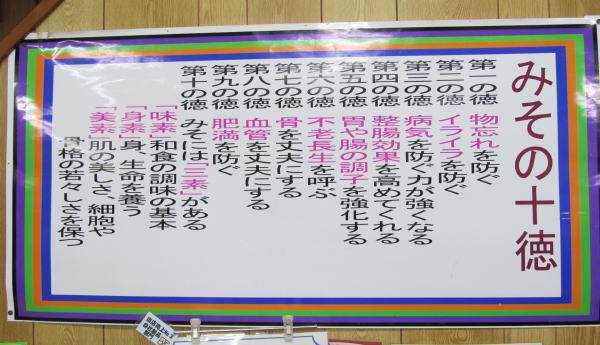 みその十徳
第一の徳 物忘れを防ぐ
第二の徳 イライラを防ぐ
第三の徳 病気を防ぐ力が強くなる
第四の徳 整腸効果を高めてくれる
第五の徳 胃や腸の調子を強化する
第六の徳 不老長生を呼ぶ
第七の徳 骨を丈夫にする
第八の徳 血管を丈夫にする
第九の徳 肥満を防ぐ
第十の徳 みそには、「三素」がある
「味素」和食の調味の基本
「身素」身、生命を養う
「美素」肌の美しさ、細胞や
骨格の若々しさを保つ